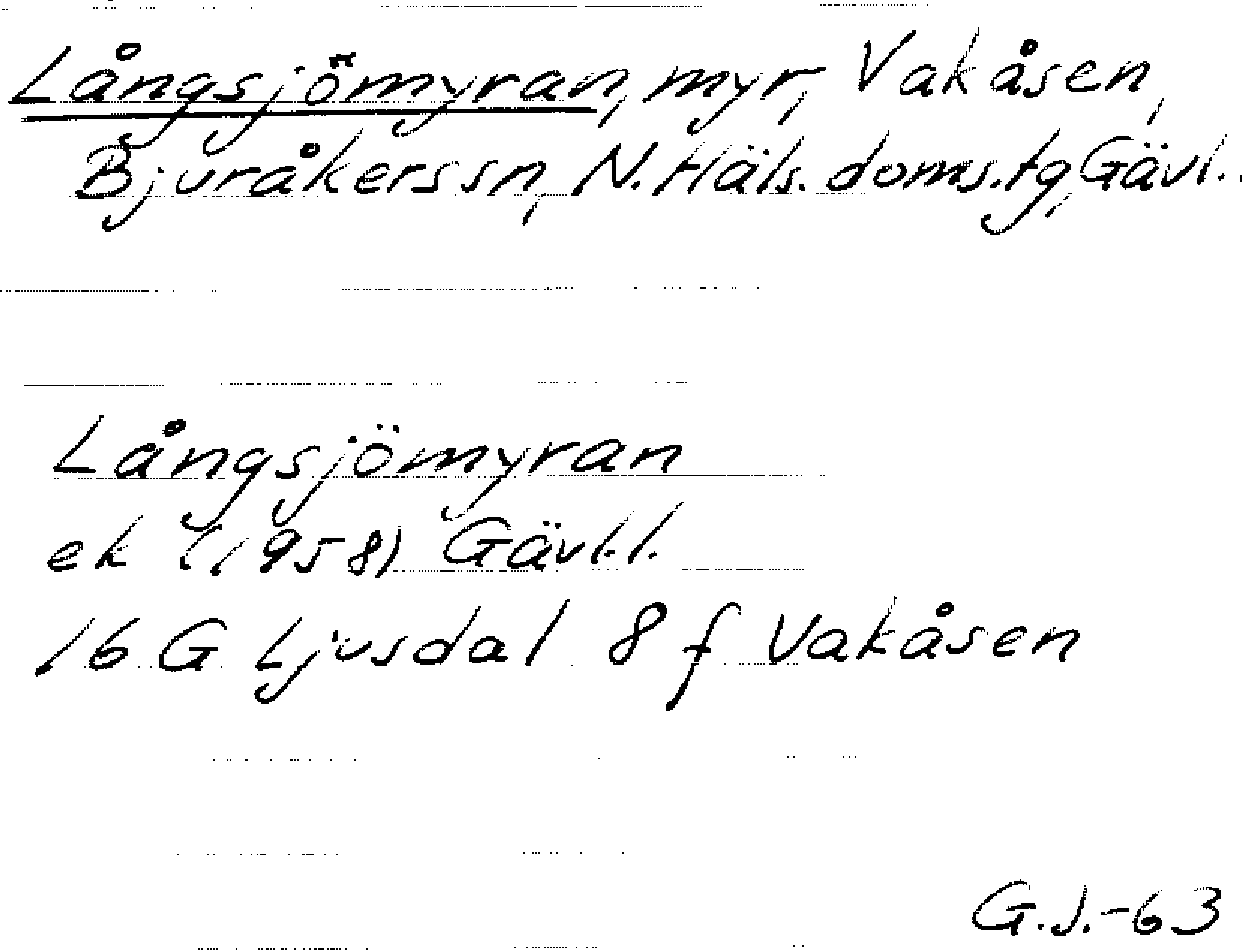 Långsjömyran, myr, Vakåsen,
Bjuråkerssn, N. Häls. doms. tg, Gävl..
Långsjömyran
ek (1958) Gävl.l.
16 G Ljusdal 8 f Vakåsen
G.J.-63